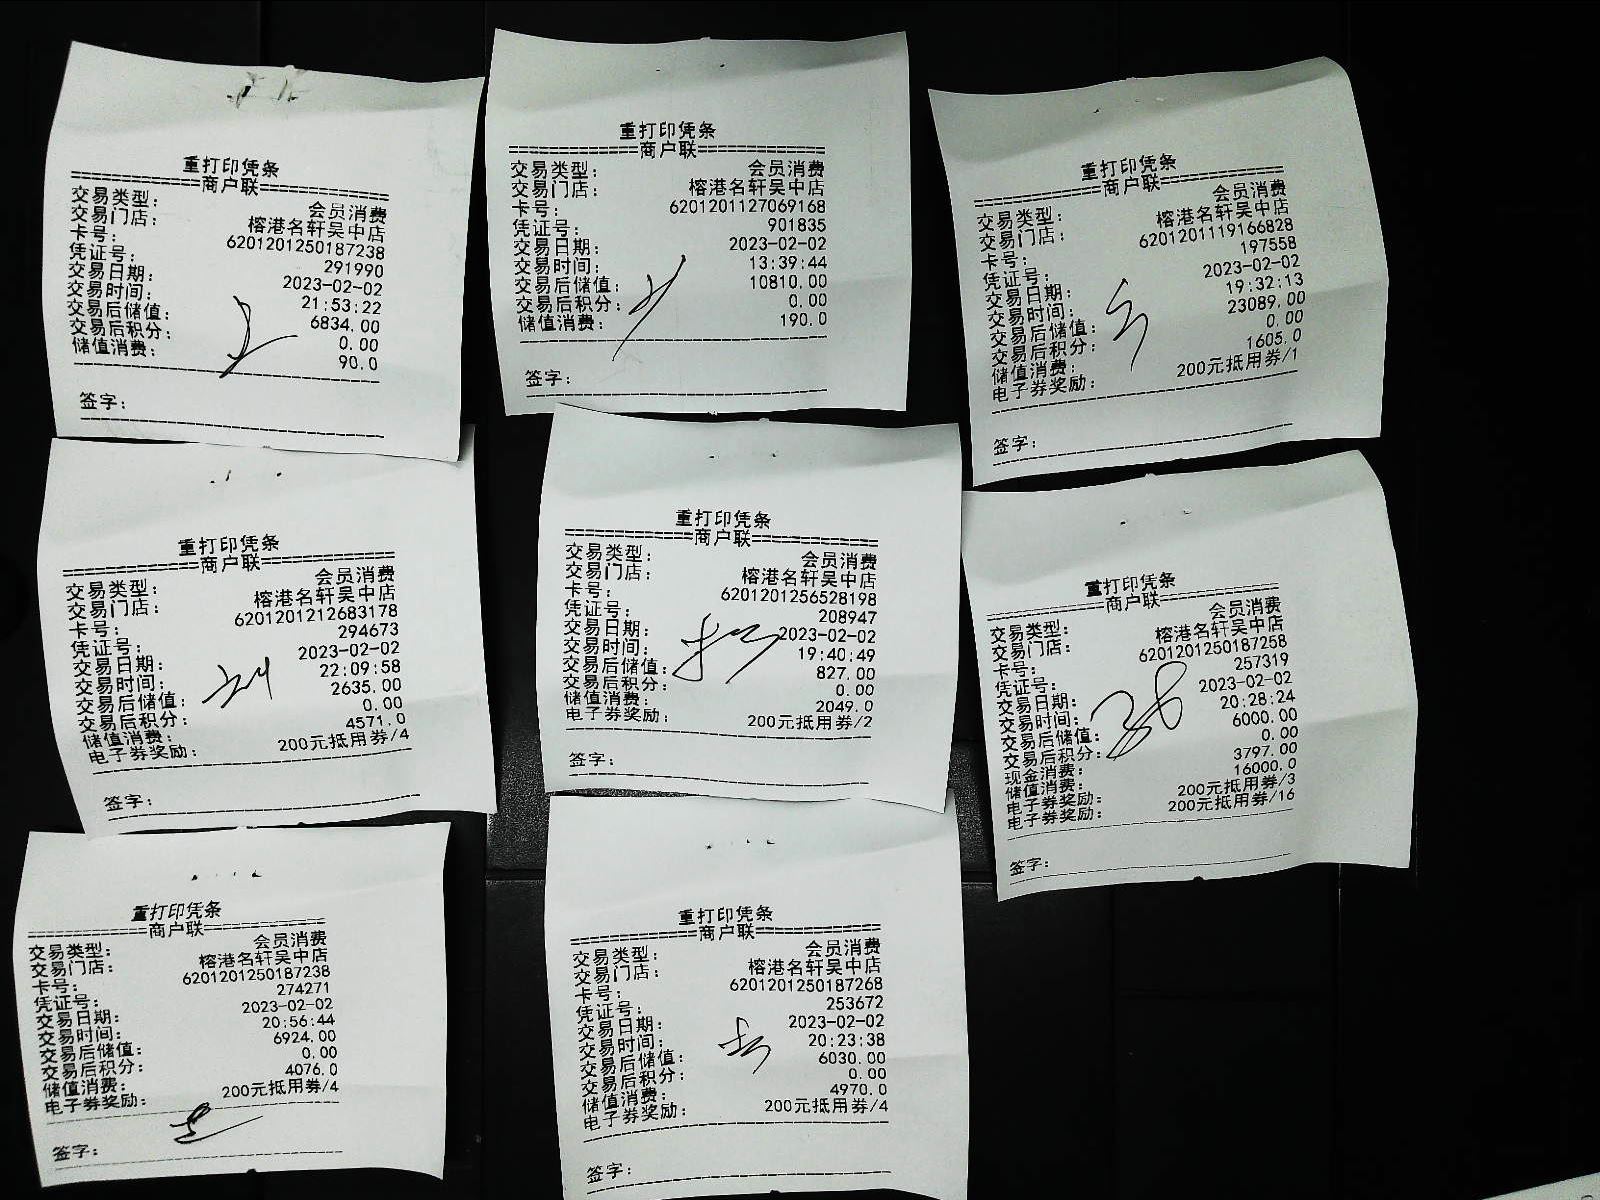 重打印凭条
==============商户联==============
交易类型: 会员消费
交易门店: 榕港名轩吴中店
卡号: 6201201250187238
凭证号: 291990
交易日期: 2023-02-02
交易时间: 21:53:22
交易后储值: 6834.00
交易后积分: 0.00
储值消费: 90.0
签字:
重打印凭条
==============商户联==============
交易类型: 会员消费
交易门店: 榕港名轩吴中店
卡号: 6201201127069168
凭证号: 901835
交易日期: 2023-02-02
交易时间: 13:39:44
交易后储值: 10810.00
交易后积分: 0.00
储值消费: 190.0
签字:
重打印凭条
==============商户联==============
交易类型: 会员消费
交易门店: 榕港名轩吴中店
卡号: 6201201119166828
凭证号: 197558
交易日期: 2023-02-02
交易时间: 19:32:13
交易后储值: 23089.00
交易后积分: 0.00
储值消费: 1605.0
电子券奖励: 200元抵用券/1
签字:
重打印凭条
==============商户联==============
交易类型: 会员消费
交易门店: 榕港名轩吴中店
卡号: 6201201212683178
凭证号: 294673
交易日期: 2023-02-02
交易时间: 22:09:58
交易后储值: 2635.00
交易后积分: 0.00
储值消费: 4571.0
电子券奖励: 200元抵用券/4
签字:
重打印凭条
==============商户联==============
交易类型: 会员消费
交易门店: 榕港名轩吴中店
卡号: 6201201256528198
凭证号: 208947
交易日期: 2023-02-02
交易时间: 19:40:49
交易后储值: 827.00
交易后积分: 0.00
储值消费: 2049.0
电子券奖励: 200元抵用券/2
签字:
重打印凭条
==============商户联==============
交易类型: 会员消费
交易门店: 榕港名轩吴中店
卡号: 6201201250187258
凭证号: 257319
交易日期: 2023-02-02
交易时间: 20:28:24
交易后储值: 6000.00
交易后积分: 0.00
现金消费: 3797.00
储值消费: 16000.0
电子券奖励: 200元抵用券/3
电子券奖励: 200元抵用券/16
签字:
重打印凭条
==============商户联==============
交易类型: 会员消费
交易门店: 榕港名轩吴中店
卡号: 6201201250187238
凭证号: 274271
交易日期: 2023-02-02
交易时间: 20:56:44
交易后储值: 6924.00
交易后积分: 0.00
储值消费: 4076.0
电子券奖励: 200元抵用券/4
签字:
重打印凭条
==============商户联==============
交易类型: 会员消费
交易门店: 榕港名轩吴中店
卡号: 6201201250187268
凭证号: 253672
交易日期: 2023-02-02
交易时间: 20:23:38
交易后储值: 6030.00
交易后积分: 0.00
储值消费: 4970.0
电子券奖励: 200元抵用券/4
签字: